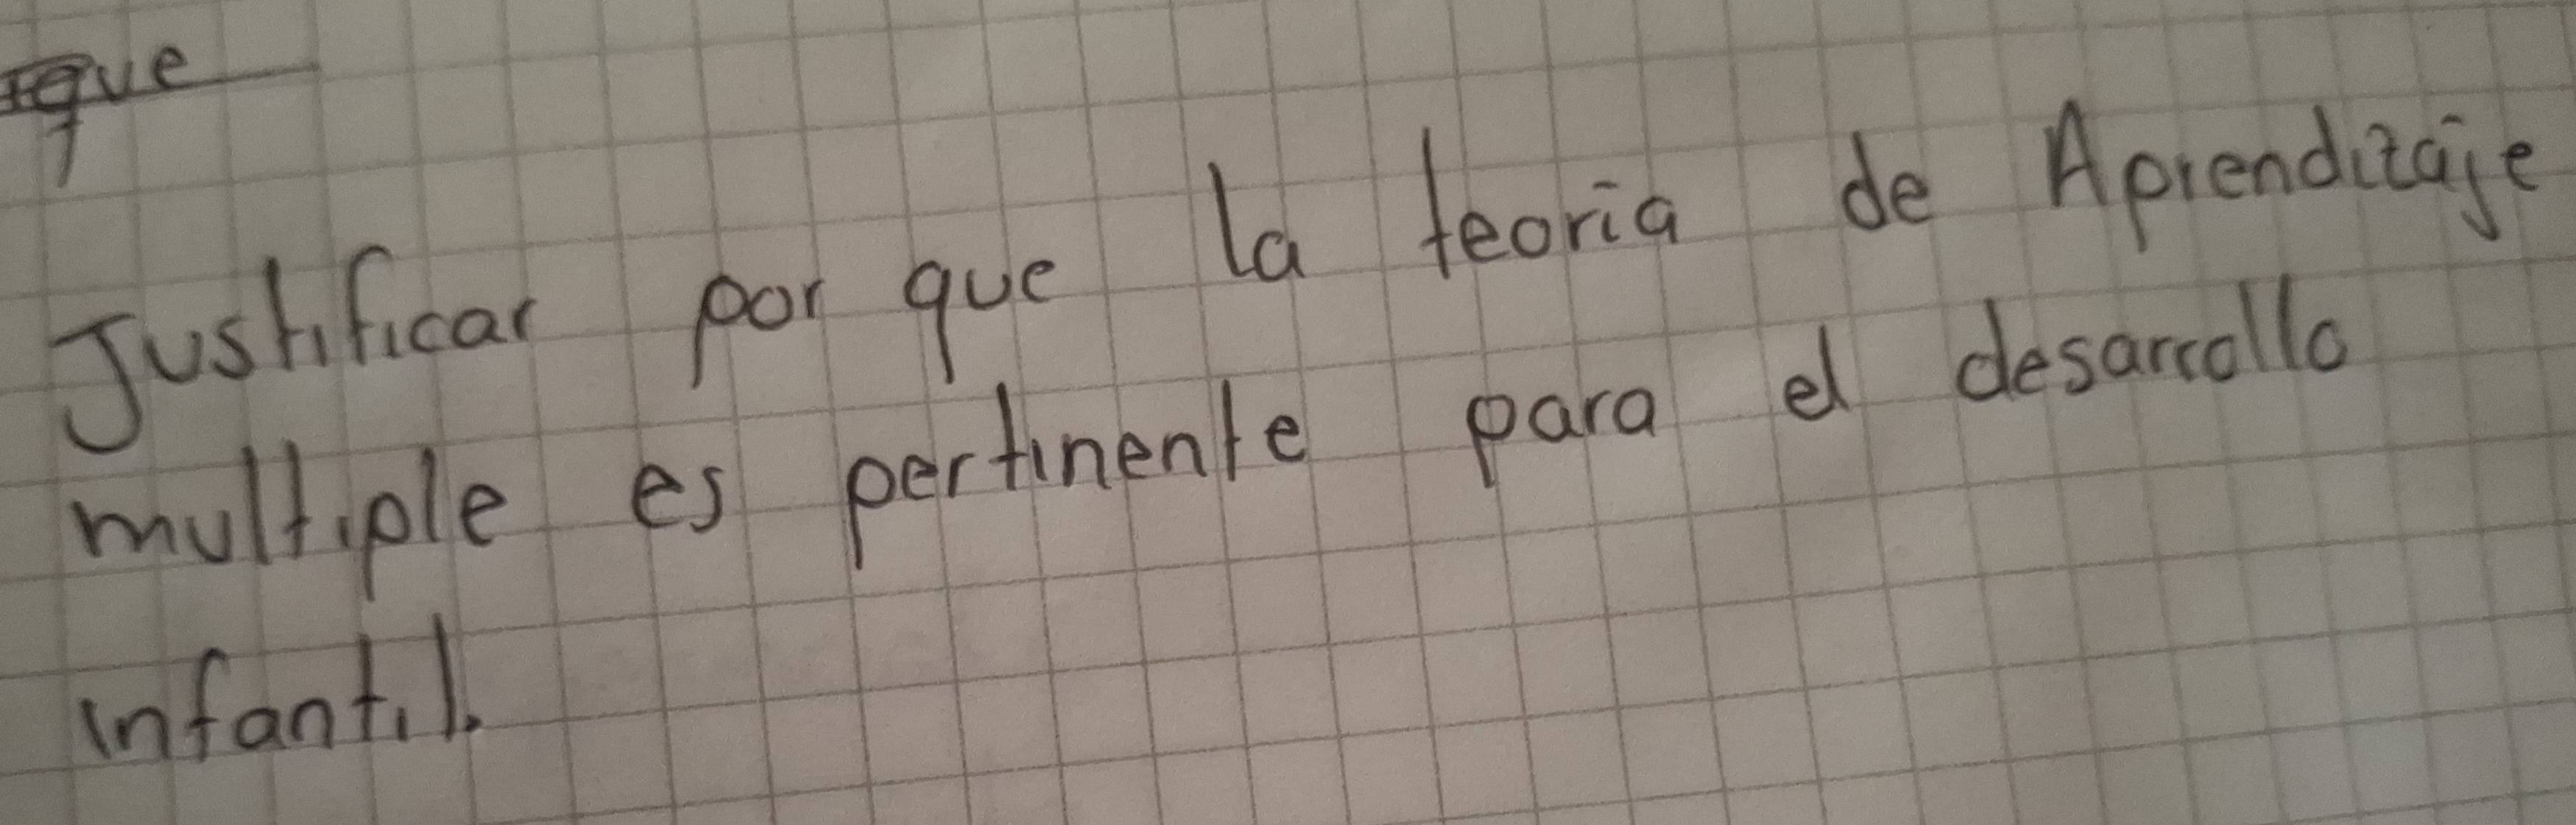 que
Justificar por que la teoría de Aprendizaje
multiple es pertinente para el desarrollo
infantil.